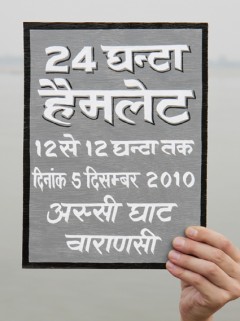 24 घन्टा
हैमलेट
12 से 12 घन्टा तक
दिनांक 5 दिसम्बर 2010
अस्सी घाट
वाराणसी